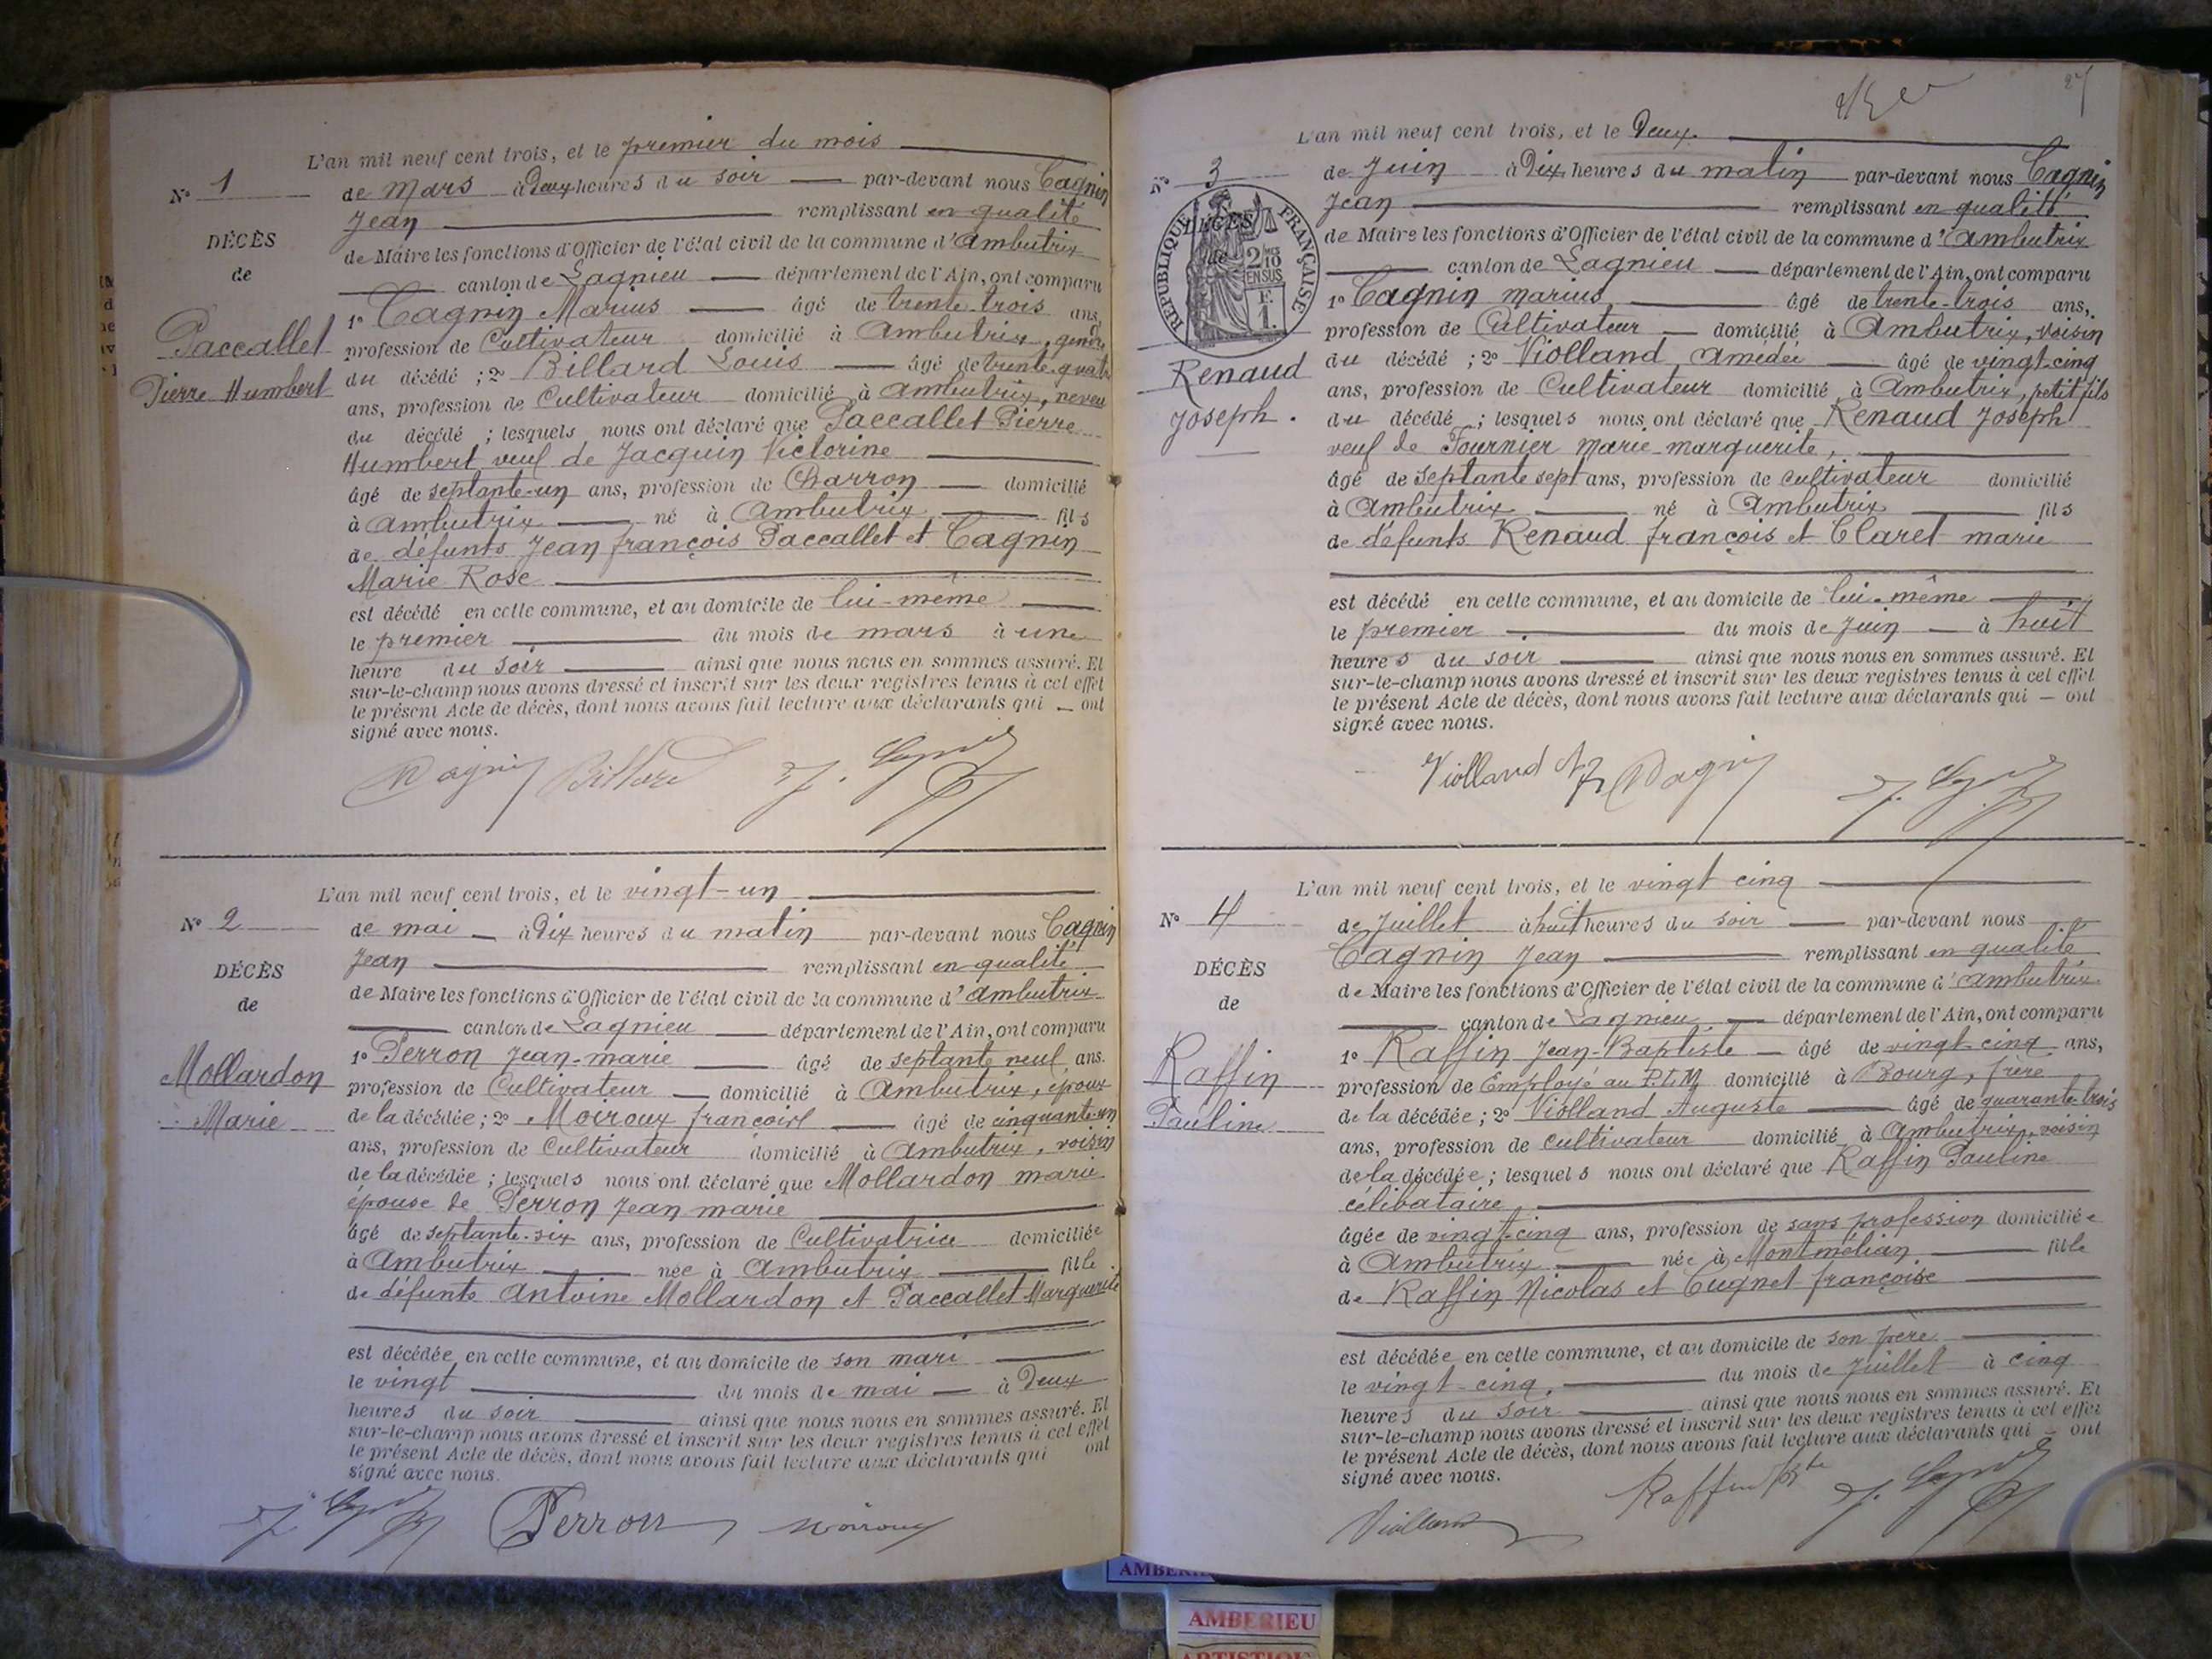 L'an mil neuf cent trois, et le premier du mois
N° 1
de Mars à Deux heures du soir par-devant nous Cagnin
Jean remplissant en qualité
DÉCÈS
de Maire les fonctions d'Officier de l'état civil de la commune d'Ambutrix
de
canton de Lagnieu département de l'Ain, ont comparu
1° Cagnin Marius âgé de trente-trois ans,
Paccallet
profession de Cultivateur domicilié à Ambutrix, gendre
Pierre Humbert
du décédé ; 2° Billard Louis âgé de trente-quatre
ans, profession de Cultivateur domicilié à Ambutrix, neveu
du décédé ; lesquels nous ont déclaré que Paccallet Pierre
Humbert veuf de Jacquin Victorine
âgé de septante-un ans, profession de Charron domicilié
à Ambutrix né à Ambutrix fils
de défunts Jean françois Paccallet et Cagnin
Marie Rose
est décédé en cette commune, et au domicile de lui-même
le premier du mois de mars à une
heure du soir ainsi que nous nous en sommes assuré. Et
sur-le-champ nous avons dressé et inscrit sur les deux registres tenus à cet effet
le présent Acte de décès, dont nous avons fait lecture aux déclarants qui ont
signé avec nous.
M Cagnin Billard J. Cagnin
L'an mil neuf cent trois, et le vingt-un
N° 2
de mai à Dix heures du matin par-devant nous Cagnin
Jean remplissant en qualité
DÉCÈS
de Maire les fonctions d'Officier de l'état civil de la commune d'Ambutrix
de
canton de Lagnieu département de l'Ain, ont comparu
1° Perron Jean-marie âgé de septante neuf ans.
Mollardon
profession de Cultivateur domicilié à Ambutrix, époux
Marie
de la décédée ; 2° Moiroux françois âgé de cinquante-un
ans, profession de Cultivateur domicilié à Ambutrix, voisin
de la décédée ; lesquels nous ont déclaré que Mollardon marie
épouse de Perron Jean marie
âgé de septante-six ans, profession de Cultivatrice domiciliée
à Ambutrix née à Ambutrix fille
de défunts Antoine Mollardon et Paccallet Marguerite
est décédée en cette commune, et au domicile de son mari
le vingt du mois de mai à Deux
heures du soir ainsi que nous nous en sommes assuré. Et
sur-le-champ nous avons dressé et inscrit sur les deux registres tenus à cet effet
le présent Acte de décès, dont nous avons fait lecture aux déclarants qui ont
signé avec nous.
J. Cagnin Perron Moiroux
27
L'an mil neuf cent trois, et le Deux
N° 3
de Juin à Dix heures du matin par-devant nous Cagnin
Jean remplissant en qualité
RÉPUBLIQUE FRANÇAISE
DÉCÈS
de
2/10 EN SUS
E.
1.
de Maire les fonctions d'Officier de l'état civil de la commune d'Ambutrix
canton de Lagnieu département de l'Ain, ont comparu
1° Cagnin marius âgé de trente-trois ans,
profession de Cultivateur domicilié à Ambutrix, voisin
Renaud
Joseph.
du décédé ; 2° Violland Amédée âgé de vingt-cinq
ans, profession de Cultivateur domicilié à Ambutrix, petit fils
du décédé ; lesquels nous ont déclaré que Renaud Joseph
veuf de Fournier Marie-marguerite,
âgé de septante sept ans, profession de cultivateur domicilié
à Ambutrix né à Ambutrix fils
de défunts Renaud françois et Claret marie
est décédé en cette commune, et au domicile de lui-même
le premier du mois de Juin à huit
heures du soir ainsi que nous nous en sommes assuré. Et
sur-le-champ nous avons dressé et inscrit sur les deux registres tenus à cet effet
le présent Acte de décès, dont nous avons fait lecture aux déclarants qui ont
signé avec nous.
Violland M Cagnin J. Cagnin
L'an mil neuf cent trois, et le vingt cinq
N° 4
de Juillet à huit heures du soir par-devant nous
Cagnin Jean remplissant en qualité
DÉCÈS
de Maire les fonctions d'Officier de l'état civil de la commune d'Ambutrix
de
canton de Lagnieu département de l'Ain, ont comparu
1° Raffin Jean-Baptiste âgé de vingt-cinq ans,
Raffin
profession de Employé au P.L.M domicilié à Bourg, frère
Pauline
de la décédée ; 2° Violland Auguste âgé de quarante-trois
ans, profession de cultivateur domicilié à Ambutrix, voisin
de la décédée ; lesquels nous ont déclaré que Raffin Pauline
célibataire,
âgée de vingt-cinq ans, profession de sans profession domiciliée
à Ambutrix née à Montmélian fille
de Raffin Nicolas et Cugnet françoise
est décédée en cette commune, et au domicile de son père
le vingt-cinq, du mois de Juillet à cinq
heures du soir ainsi que nous nous en sommes assuré. Et
sur-le-champ nous avons dressé et inscrit sur les deux registres tenus à cet effet
le présent Acte de décès, dont nous avons fait lecture aux déclarants qui ont
signé avec nous.
Violland Raffin Bte J. Cagnin
AMBERIEU